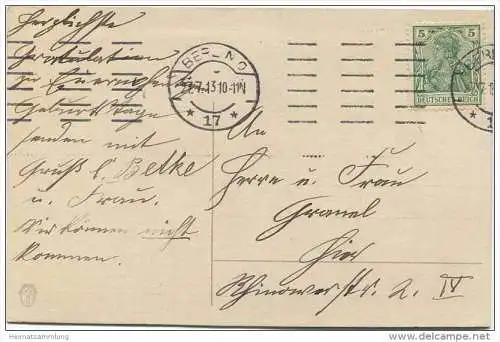 Herzlichste
Gratulation
zu Eurem
Geburtstage
senden mit
Gruß E. Betke
u. Frau.
Wir können nicht
kommen.
BERLIN O
22.7.13.10-11V
* 17 *
5 5
DEUTSCHES REICH
An
Herrn u. Frau
Granel
hier
Rhinowerstr. 2. IV
Heimatsammlung
www.delcampe.net